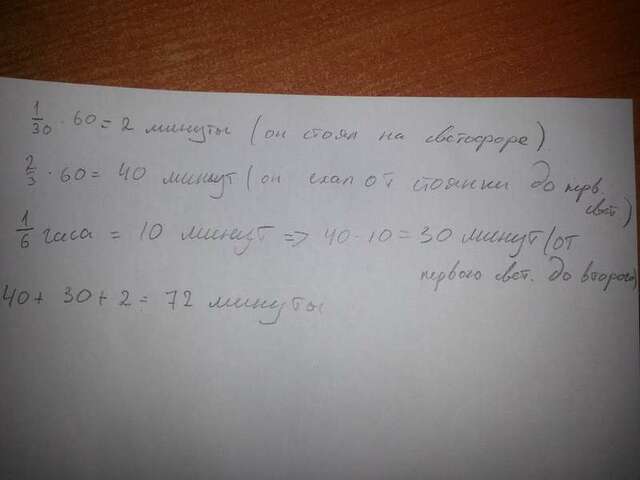 1/30 · 60 = 2 минуты (он стоял на светофоре)
2/3 · 60 = 40 минут (он ехал от стоянки до перв.
свет.)
1/6 часа = 10 минут => 40 - 10 = 30 минут (от
первого свет. до второго)
40 + 30 + 2 = 72 минуты